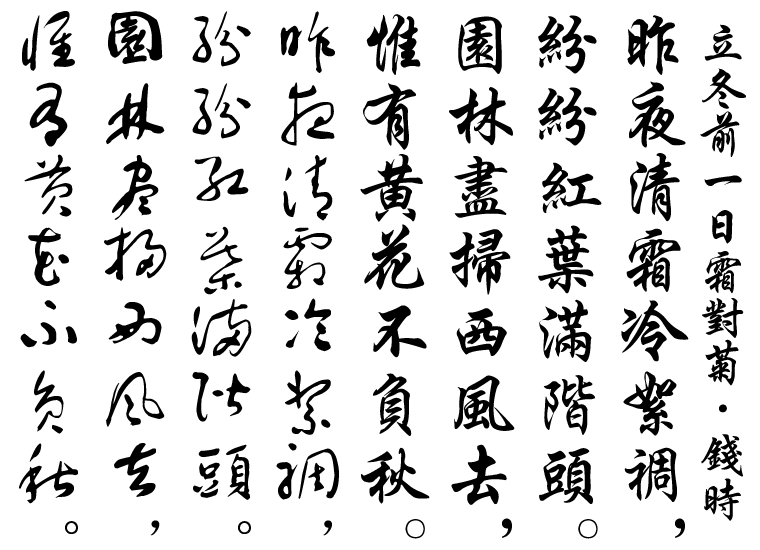 立冬前一日霜對菊·錢時
昨夜清霜冷絮裯，
紛紛紅葉滿階頭。
園林盡掃西風去，
惟有黃花不負秋。
昨夜清霜冷絮裯，
紛紛紅葉滿階頭。
園林盡掃西風去，
惟有黃花不負秋。